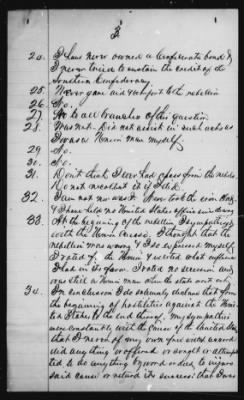 3
24. I have never owned a Confederate bond &
I never tried to sustain the credit of the
Southern Confederacy
25. Never gave aid & comfort to the rebellion
26. No.
27. No to all branches of this question
28. Was not. Did not assist in such acts as
I was a Union man myself.
29. No.
30. No.
31. Don't think I ever had a pass from the rebels
Do not recollect it if I did.
32. Am not no went. Never took the iron
& I have held no United States office
33. At the beginning of the rebellion I sympathized
with the Union Cause. I thought that the
rebellion was wrong & I so expressed myself
I voted for the Union & exerted what influence
I had in its favor. I voted no secession and
was still a Union man after the state went out
34. In conclusion I do solemnly declare that from
the beginning of hostilities against the Uni-
ted States to the end thereof, my sympathies
were constantly with the cause of the United States
that I never of my own free will & accord
did anything or offered or sought or attemp-
ted to do anything by word or deed to injure
said cause or retard its success; that I was